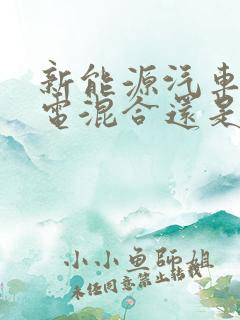 新能源汽車
電混合還是
小小鱼師姐
未经同意禁止转载